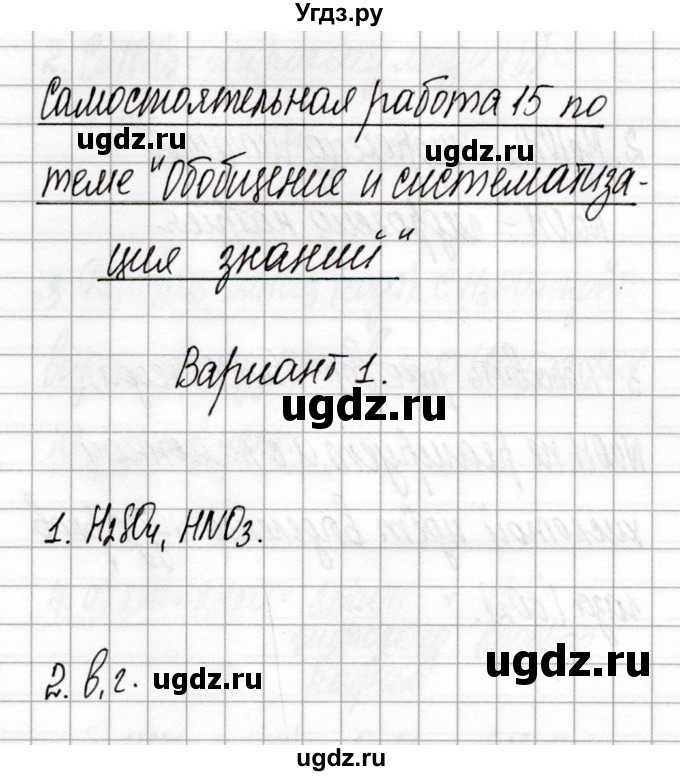 Угдз.ру
Самостоятельная работа 15 по
ugdz.ru
ugdz.ru
теме "Обобщение и систематиза-
ция знаний"
Вариант 1.
ugdz.ru
1. H2SO4, HNO3.
ugdz.ru
2. в, г.
ugdz.ru
ugdz.ru